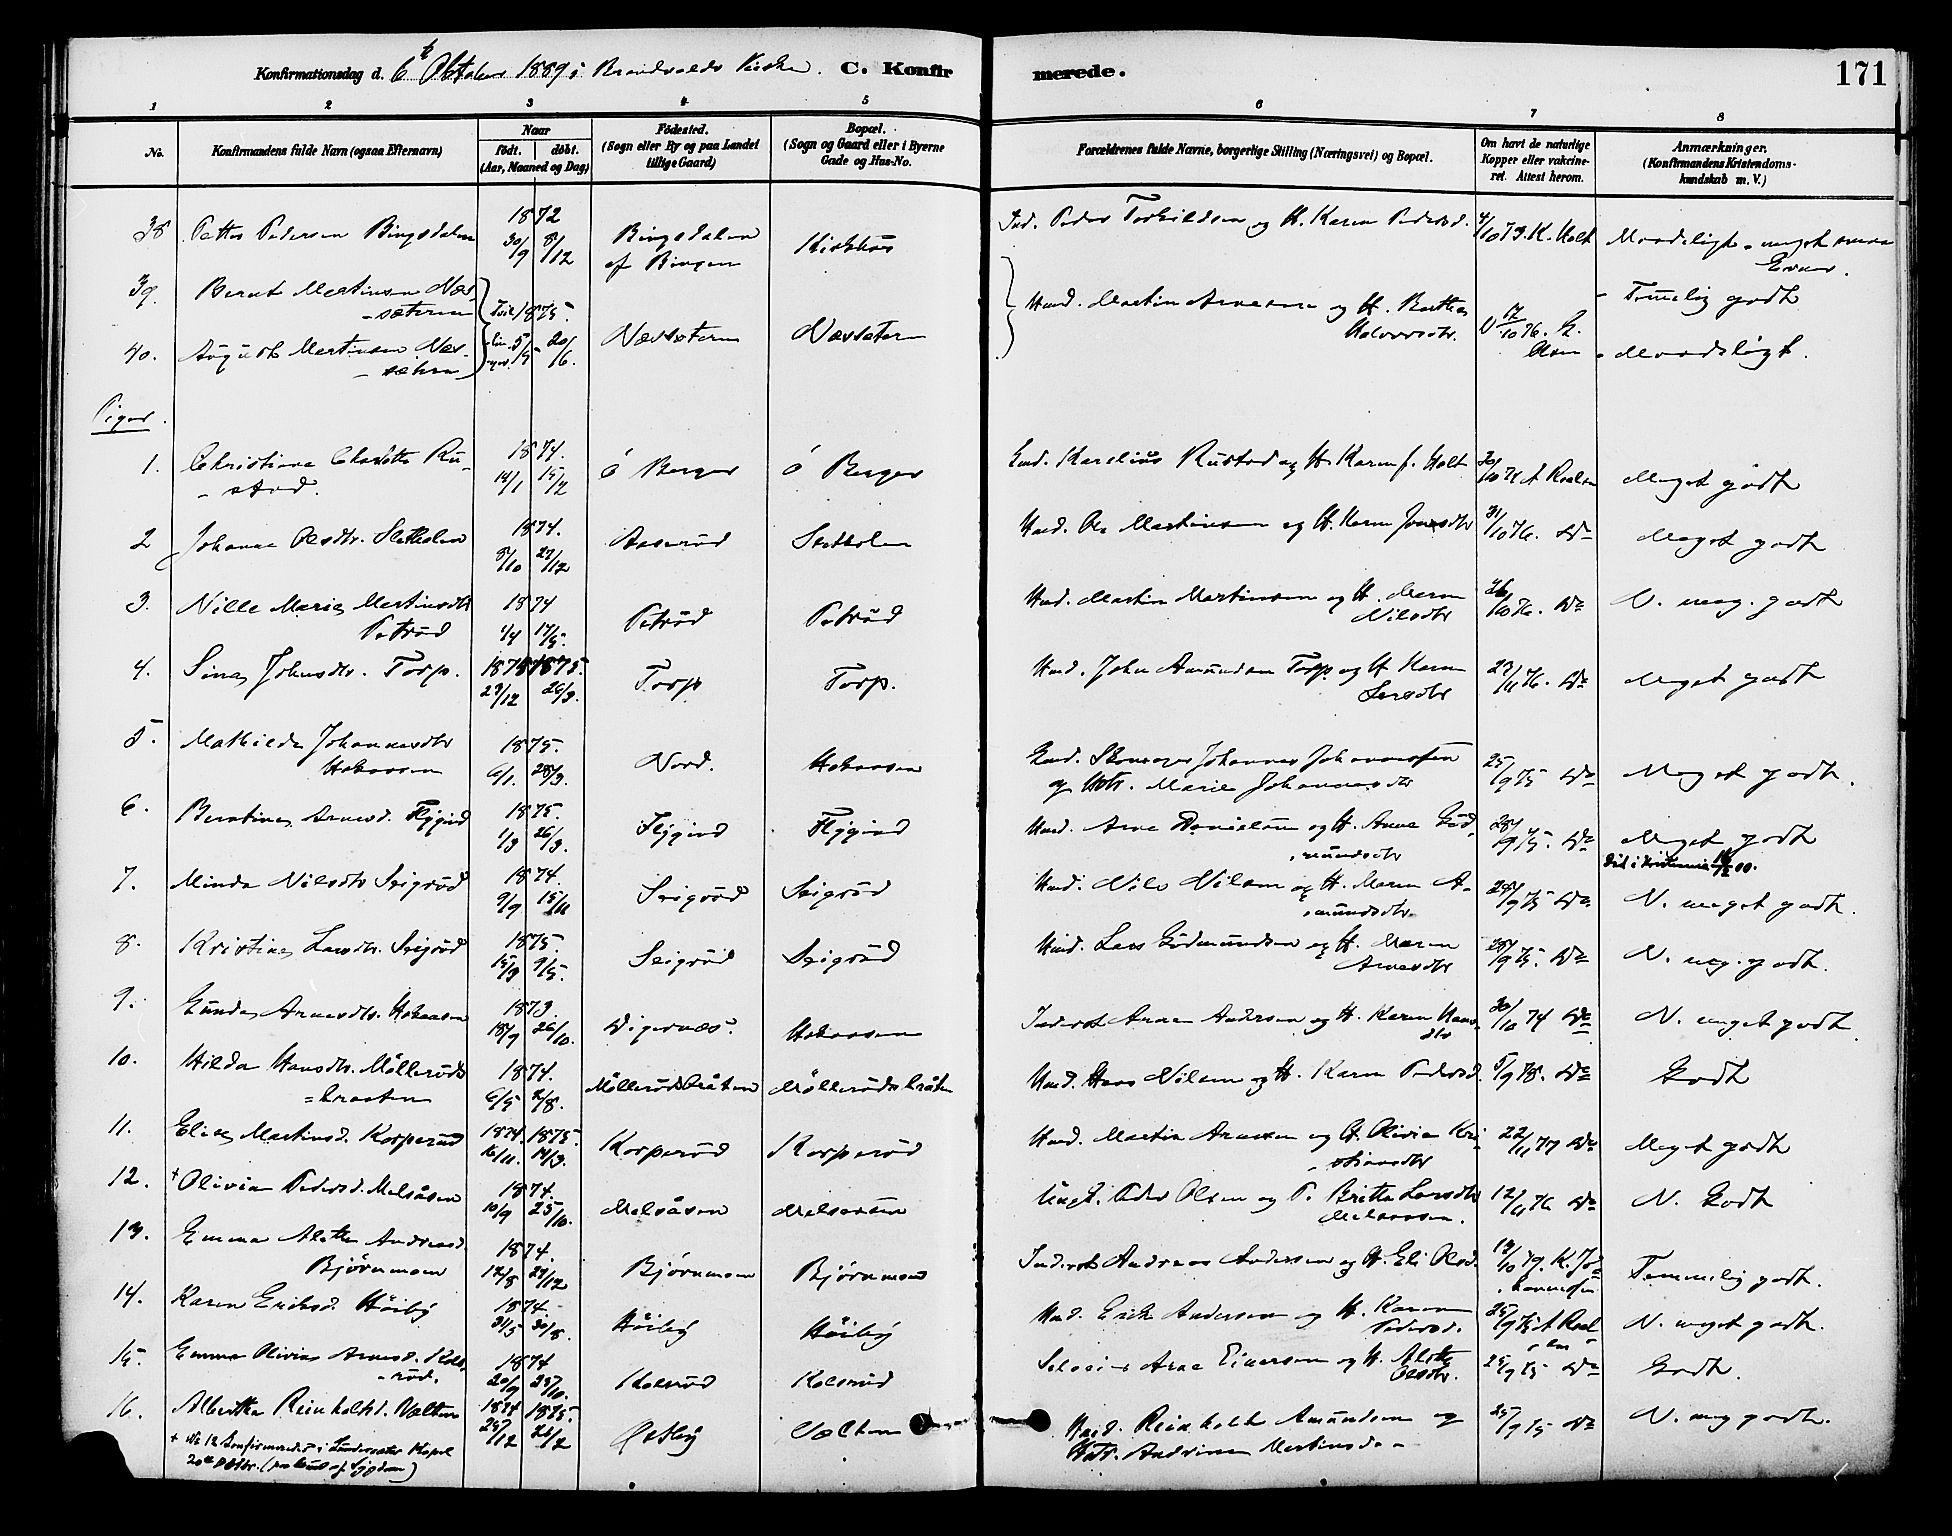 Konfirmationsdag d. 6te Oktober 1889 i Brandvalds Kirke. C. Konfirmerede.
171
1 2 3 4 5 6 7 8
No.
Konfirmandens fulde Navn (ogsaa Efternavn)
Naar
födt. döbt.
(Aar, Maaned og Dag)
Födested.
(Sogn eller By og paa Landet
tillige Gaard)
Bopæl.
(Sogn og Gaard eller i Byerne
Gade og Hus-No.
Forældrenes fulde Navne, borgerlige Stilling (Næringsvei) og Bopæl.
Om havt de naturlige
Kopper eller vakcine-
ret. Attest herom.
Anmærkninger.
(Konfirmandens Kristendoms-
kundskab m. V.)
38 Petter Pedersen Bingsdalen 1872 30/9 8/12 Bingsdalen af Bingen Ind. Peder Torkildsen og H. Karen Pedersd. 4/10 73. K. Holt Maadeligt meget svare Evner.
39. Bernt Martinsen Næssæteren Tvil. 1875. Næssæteren Næssæteren Husd. Martin Arnesen og H. Berthe Halvorsdtr. 17/10 76. Temmelig godt
40. August Martinsen Næssæteren 5/5 20/6. Olsen Maadeligt.
Piger.
1. Christiane Charlotte Rustad. 1874. 14/1 15/2 ö Berger ö Berger Gaard. Karelius Rustad og H. Karen f. Holt 30/10 71 A Roalsen Meget godt
2 Johanne Olsdtr. Sletholen 1874. 8/10 27/12 Aaserud Sletholen Husd. Ole Martinsen og H. Karen Jonsdtr 31/10 76. Do Meget godt
3. Nille Marie Martinsdtr Petrüd 1874 1/4 17/5. Petrüd Petrüd Husd. Martin Martinsen og H. Maren Nilsdtr 26/10 76. Do N. meg. godt
4. Sina Johnsdtr. Torp. 1874 1875. 29/12 26/3. Torp Torp. Husd. John Amundsen Torp og H. Karen Larsdtr 23/11 76. Do Meget godt
5. Mathilde Johannesdtr Hokaasen 1875. 6/1. 28/3. Nord. Hokaasen Johannes Johannessen og Hstr. Marie Johannesdtr 25/9 75 Do Meget godt.
6. Berntine Arnesd. Flÿgind 1875. 1/3 26/3. Flÿgind Flÿgind Husd. Arne Danielsen og H. Anne Gudmundsdtr 28/9 75. Do Meget godt
7. Minda Nilsdtr Seigrüd 1874. 9/9 15/11 Seigrüd Seigrüd Husd. Nils Nilsen og H. Maren Amundsdtr 28/9 75 Do. N. meget godt.
8. Kristine Larsdtr. Seigrüd 1875. 15/3 9/5. Seigrüd Seigrüd Husd. Lars Gudmundsen og H. Maren Arnesdtr 28/9 75. Do N. meg. godt.
9. Gunda Arnesdtr. Hokaasen 1873. 18/9 26/10. Digernæs. Hokaasen Inderst Arne Andersen og H. Karen Hansdtr 30/10 74 Do N. meget godt.
10. Hilda Hansdtr. Möllerudsbraaten 1874. 6/5 2/8. Möllerudsbråten Möllerudsbråten Husd. Hans Nilsen og H. Karen Pedersd. 5/9 78. Do Godt
11. Elise Martinsd. Korperud 1874. 1875. 16/11. 14/3. Korperüd Korperüd Husd. Martin Arnesen og H. Olivia Kristiansdtr 22/11 77 Do Meget godt
12. + Olivia Pedersd. Melsåsen 1874. 10/9 25/10. Melsåsen Melsaasen Ungk. Peder Olsen og P. Britta Larsdtr Melaasen. 12/11 76 Do N. Godt
13. Emma Alette Andreasd. Bjørnmoen 1874. 12/8 27/12 Bjørnmoen Bjørnmoen Inderst Andreas Andersen og H. Eli Olsd. 19/10 79. K. Johannessen Temmelig godt.
14. Karen Eriksd. Höiby 1874. 31/5 30/8. Höiby Höiby Husd. Erik Andersen og H. Karen Pedersd. 25/9 75 A Roalsen N. meget godt.
15. Emma Olivia Arnesd. Kolsrüd. 1874 20/9 25/10. Kolsrüd Kolsrud Selveier Arne Einersen og H. Alette Olsdtr. 25/9 75 Do Godt.
16. Albertha Reinholdsd. Velten 1874 1875. 25/12 21/2 Østby Velten Husd. Reinholt Amundsen og Hstr. Andrine Martinsd. 25/9 75 Do N. meg godt.
+ No 12 konfirmeredes i Lundersæter Kapel
20de Oktbr. (paa Grund af Sygdom)